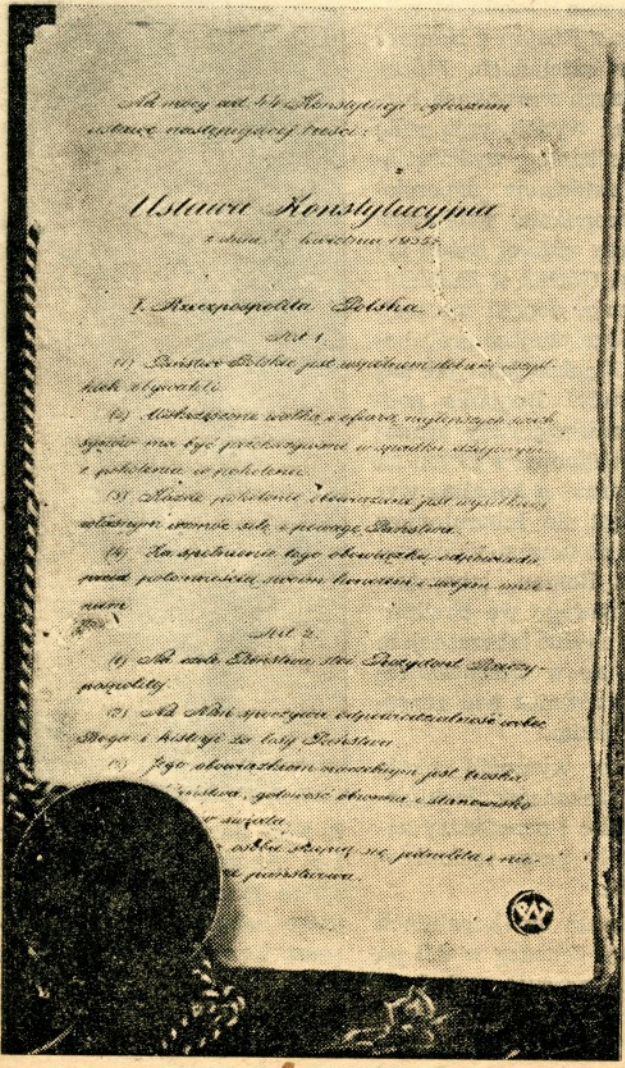 Na mocy art. 44 Konstytucji ogłaszam
ustawę następującej treści:
Ustawa Konstytucyjna
z dnia kwietnia 1935 r.
I. Rzeczpospolita Polska.
Art. 1.
(1) Państwo Polskie jest wspólnem dobrem wszyst-
kich obywateli.
(2) Wskrzeszone walką i ofiarą najlepszych swoich
synów ma być przekazywane w spadku dziejowym
z pokolenia w pokolenie.
(3) Każde pokolenie obowiązane jest wysiłkiem
własnym wzmóc siłę i powagę Państwa.
(4) Za spełnienie tego obowiązku odpowiada
przed potomnością swoim honorem i swojem imie-
niem.
Art. 2.
(1) Na czele Państwa stoi Prezydent Rzeczy-
pospolitej.
(2) Na Nim spoczywa odpowiedzialność wobec
Boga i historji za losy Państwa.
(3) Jego obowiązkiem naczelnym jest troska
gotowość obronna i stanowisko
świata.
osobie skupia się jednolita i nie-
państwowa.
PAT